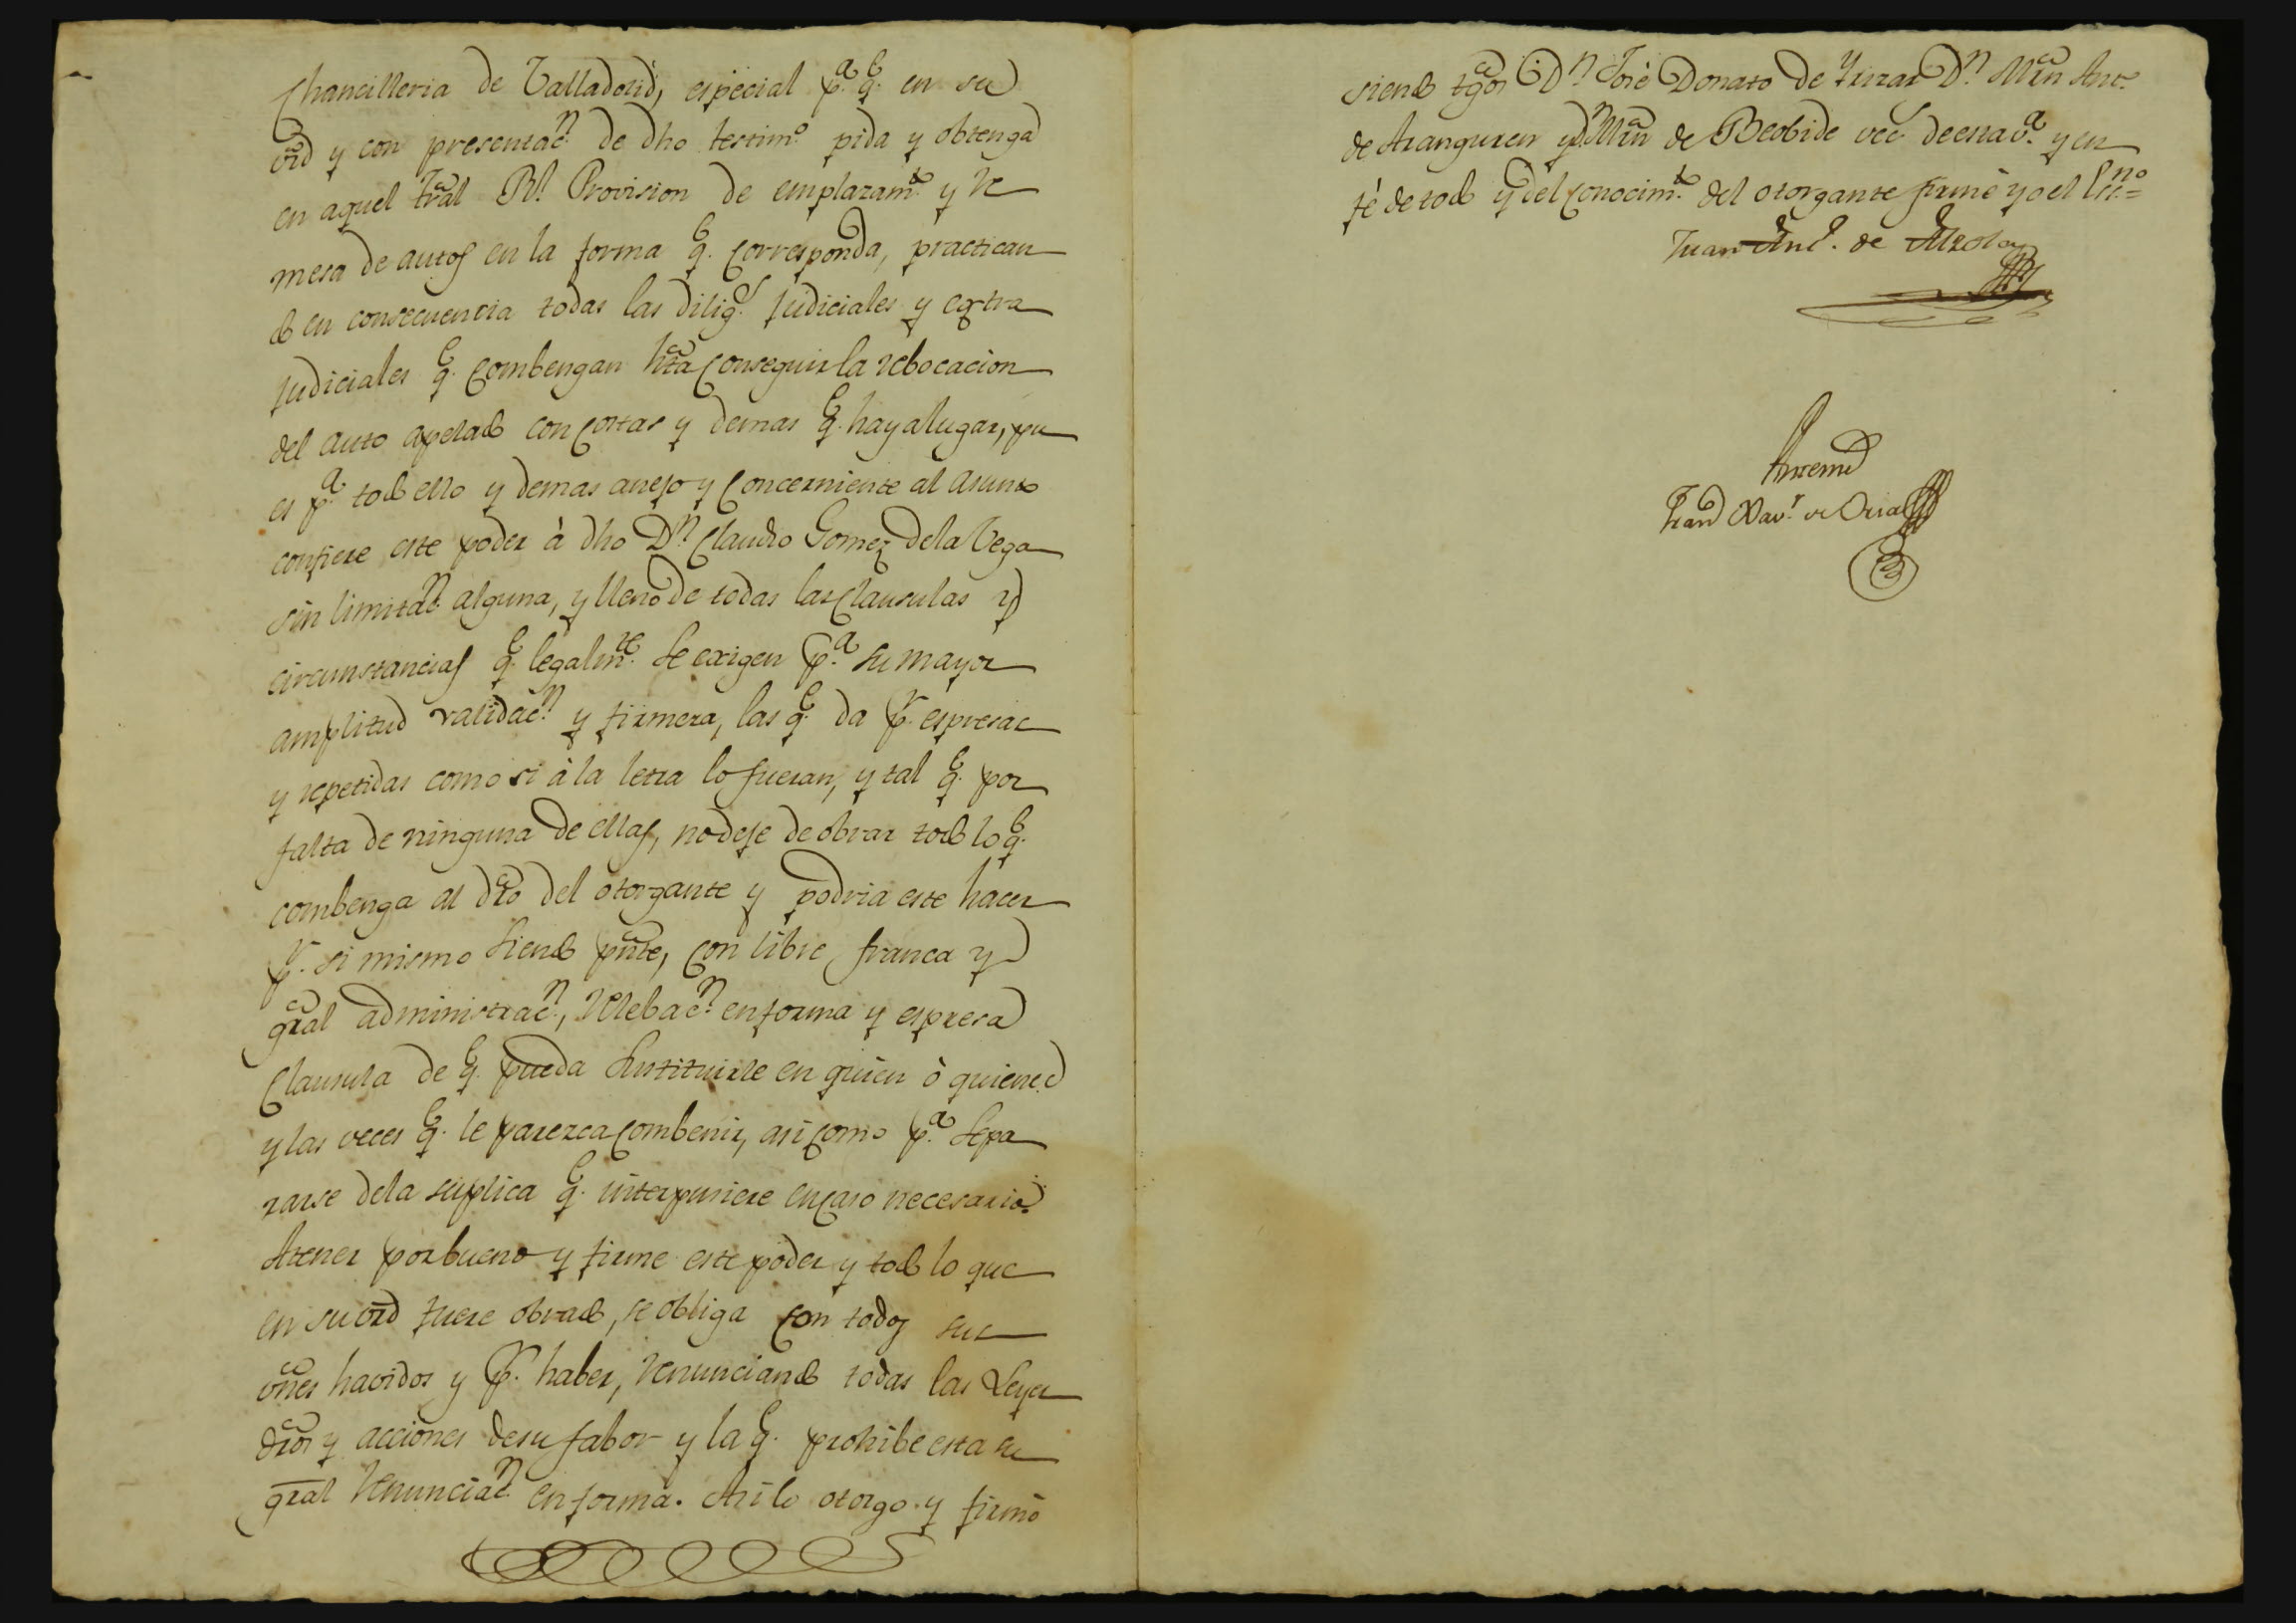 Chancilleria de Valladolid, especial p.ª q.e en su
vrd y con presentac.n de dho testim.o pida y obtenga
en aquel tral Rl. Provision de emplazam.to y re
mesa de autos en la forma q.e corresponda, practican
do en consecuencia todas las dilig.s judiciales y extra
judiciales q.e combengan hta conseguir la rebocacion
del auto apelado con costas y demas q.e haya lugar, pu
es p.ª todo ello y demas anejo y concerniente al asunto
confiere este poder à dho D.n Claudio Gomez dela Vega
sin limitac.n alguna, y lleno de todas las clausulas y
circunstancias q.e legalm.te se exigen p.ª su mayor
amplitud validac.n y firmeza, las q.e da p.r espresas
y repetidas como si à la letra lo fueran, y tal q.e por
falta de ninguna de ellas, no deje de obrar todo lo q.e
combenga al dro del otorgante y podria este hacer
p.r si mismo siendo pnte, con libre franca y
gral administrac.n, relebac.n en forma y espresa
clausula de q.e pueda sustituirle en quien ò quienes
y las veces q.e le parezca combenir, asi como p.ª sepa
rarse dela suplica q.e interpusiere en caso necesario.
Atener por bueno y firme este poder y todo lo que
en su vrd fuere obrado, se obliga con todos sus
vnes havidos y p.r haber, renunciando todas las Leyes
dros y acciones de su fabor y la q.e prohibe esta su
gral renunciac.n en forma. Asi lo otorgo y firmò
siendo tgos D.n José Donato de Yrizar D.n Mrn Ant.o
de Aranguren y D.n Mrn de Beobide vec.s de esta v.ª y en
fé de todo y del conocim.to del otorgante firmé yo el Ess.no=
Juan Ant.o de Alzola
Antemi
Fran.co Xav.r de Oria